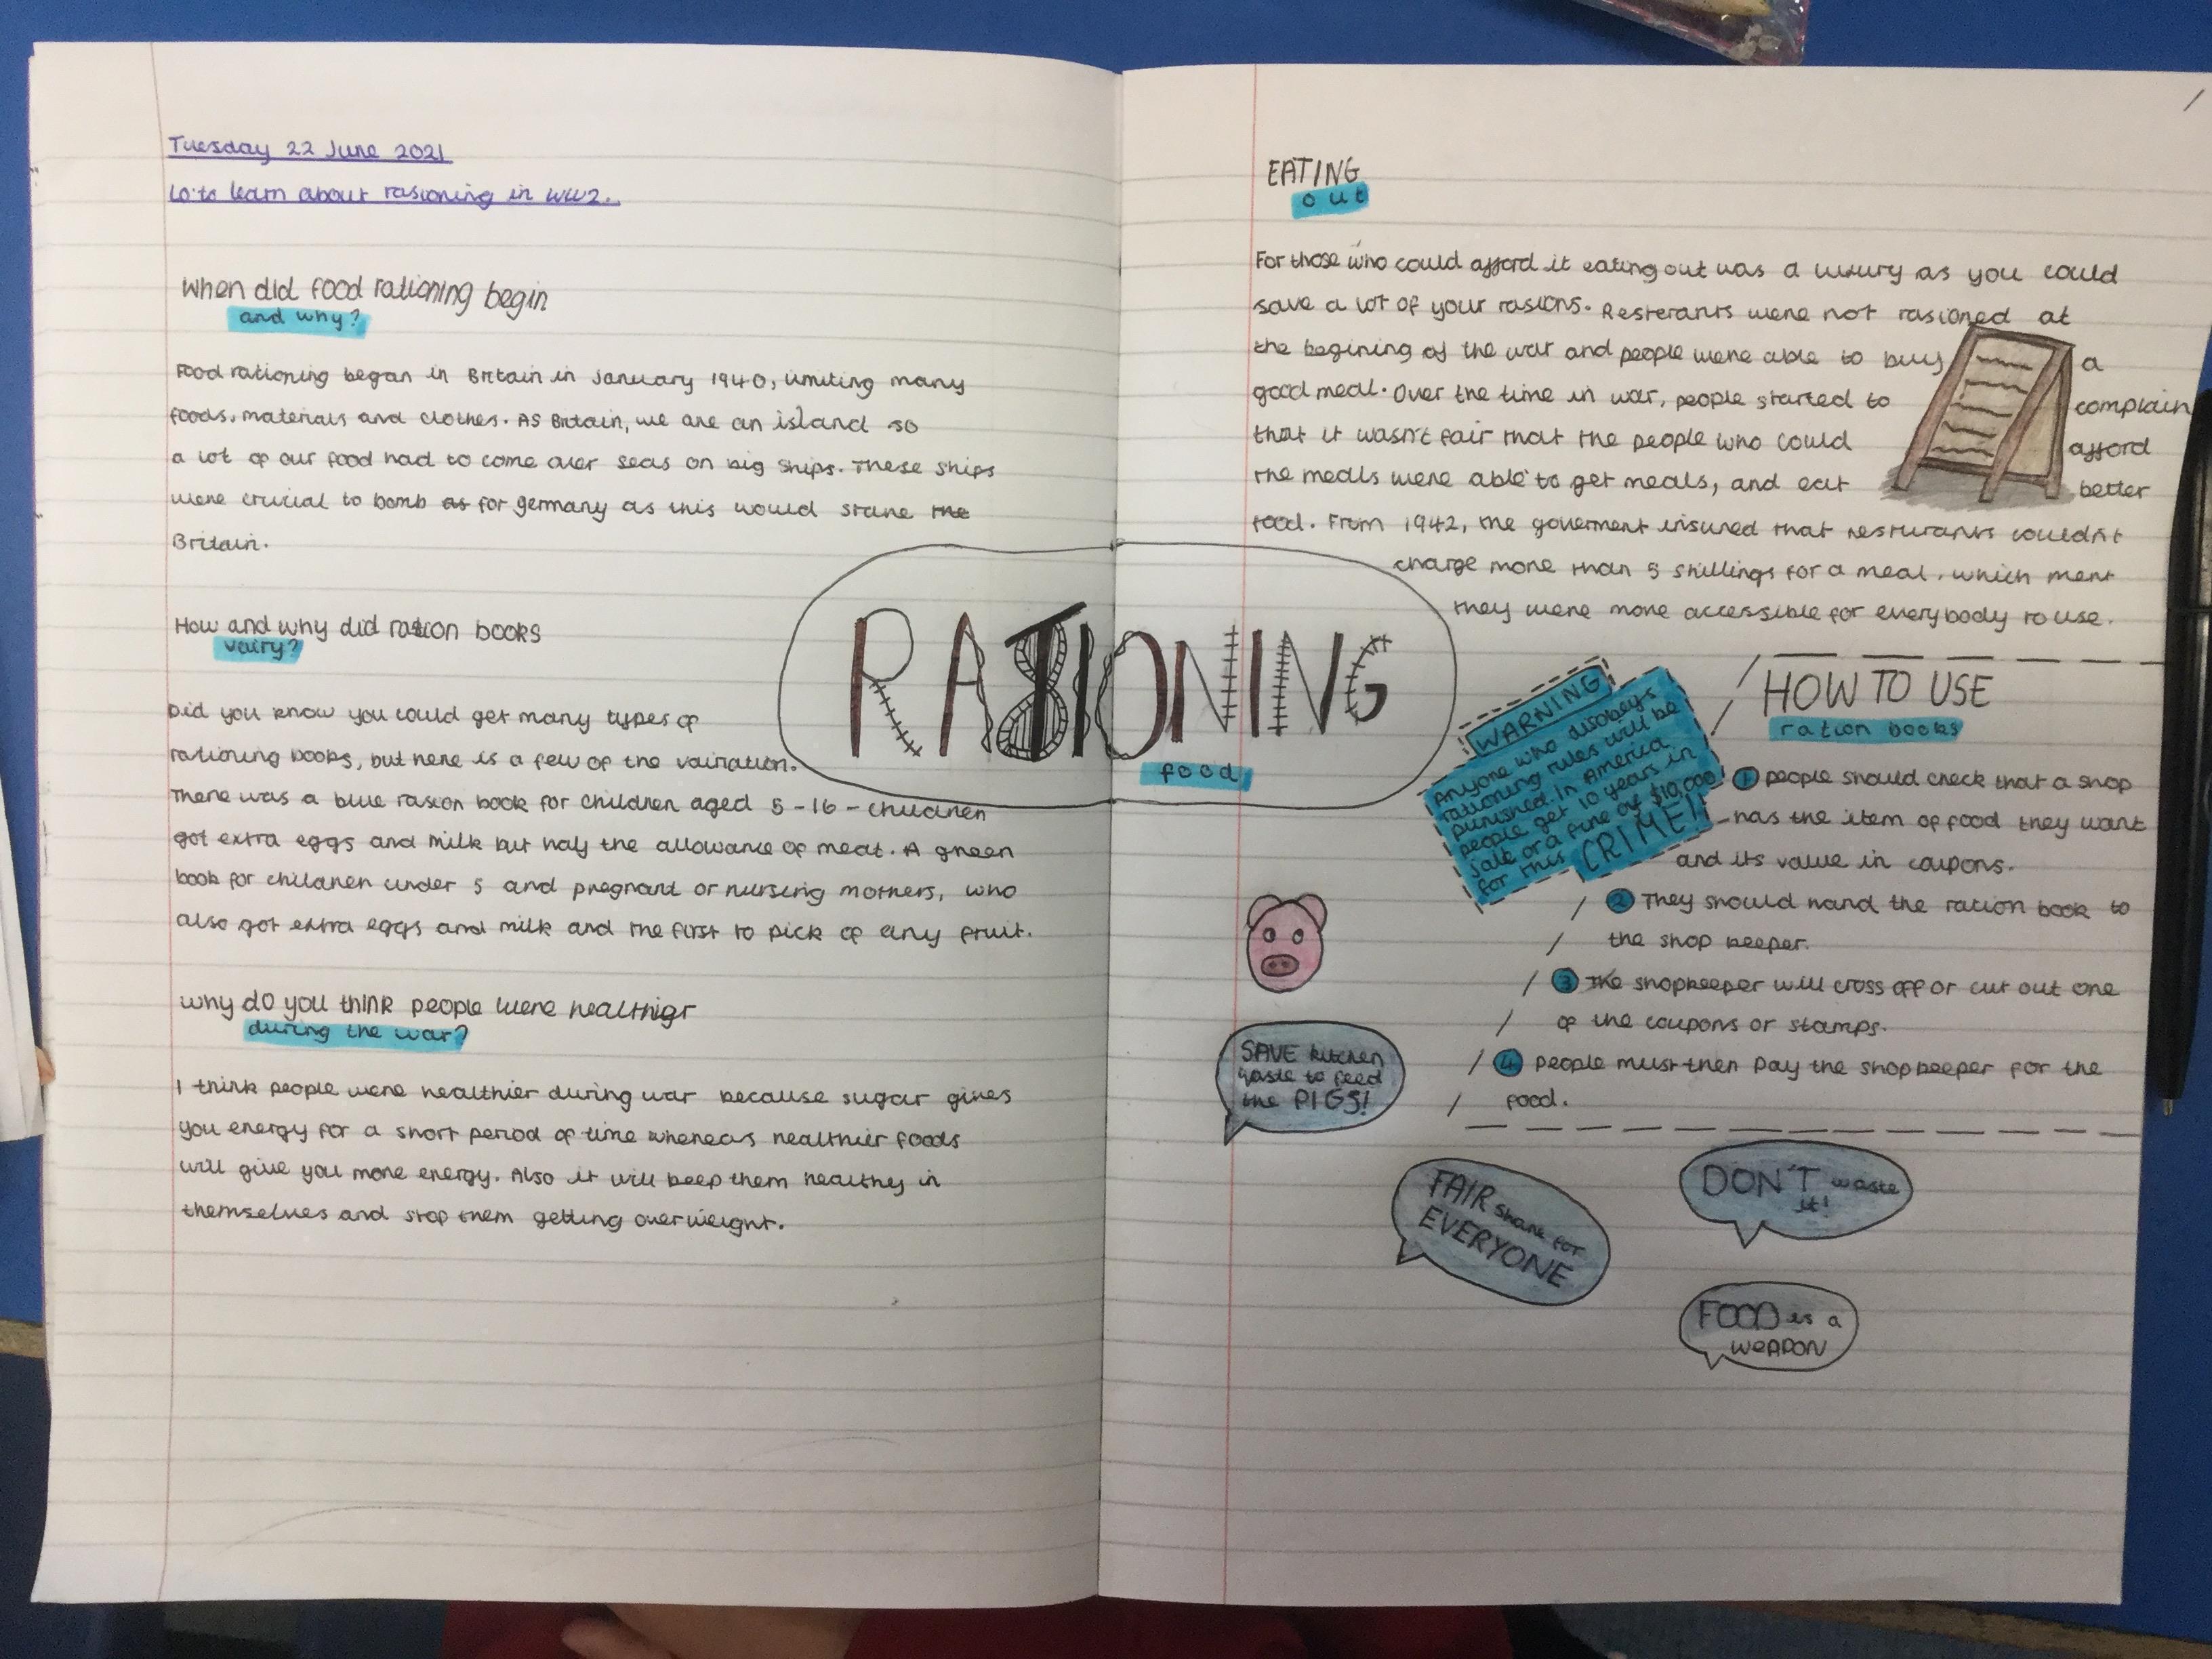 Tuesday 22 June 2021
LO: to learn about rasioning in WW2.
When did food rationing begin
and why?
Food rationing began in Britain in January 1940, limiting many
foods, materials and clothes. As Britain, we are an island so
a lot of our food had to come over seas on big ships. These ships
were crucial to bomb as for Germany as this would starve the
Britain.
How and why did ration books
vairy?
Did you know you could get many types of
rationing books, but here is a few of the vairation.
There was a blue rasion book for children aged 5-16 - children
got extra eggs and milk but half the allowance of meat. A green
book for children under 5 and pregnant or nursing mothers, who
also got extra eggs and milk and the first to pick of any fruit.
Why do you think people were healthier
during the war?
I think people were healthier during war because sugar gives
you energy for a short period of time whereas healthier foods
will give you more energy. Also it will keep them healthy in
themselves and stop them getting overweight.
RATIONING
food
EATING
out
For those who could afford it eating out was a luxury as you could
save a lot of your rasions. Resterants were not rasioned at
the begining of the war and people were able to buy a
good meal. Over the time in war, people started to complain
that it wasn't fair that the people who could afford
the meals were able to get meals, and eat better
food. From 1942, the goverment insured that resturants couldn't
charge more than 5 shillings for a meal, which ment
they were more accessible for everybody to use.
WARNING
Anyone who disobeys
rationing rules will be
punished. In America
people get 10 years in
jale or a fine of $10,000!
for this CRIME!!
HOW TO USE
ration books
1 people should check that a shop
has the item of food they want
and its value in coupons.
2 They should hand the ration book to
the shop keeper.
3 The shopkeeper will cross off or cut out one
of the coupons or stamps.
4 People must then pay the shopkeeper for the
food.
SAVE kitchen
waste to feed
the PIGS!
FAIR share for
EVERYONE
DON'T waste
it!
FOOD is a
WEAPON